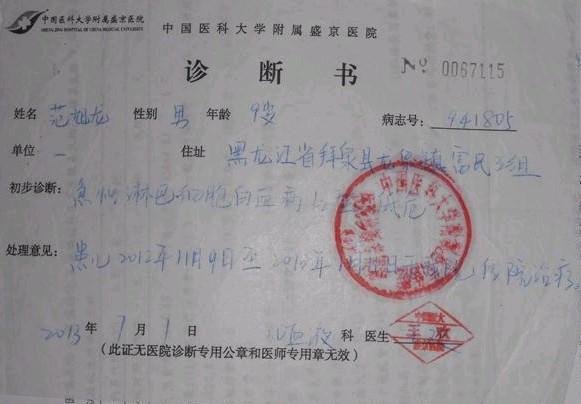 中国医科大学附属盛京医院
SHENGJING HOSPITAL OF CHINA MEDICAL UNIVERSITY
中国医科大学附属盛京医院
诊断书 № 0067115
姓名 范旭龙 性别 男 年龄 9岁 病志号: 941805
单位 一 住址 黑龙江省拜泉县龙泉镇富民3组
初步诊断: 急性淋巴细胞白血病
处理意见: 患儿2012年11月9日至2013年 院住院治疗。
2013 年 7 月 1 日 科 医生
(此证无医院诊断专用公章和医师专用章无效)
中国医科大学